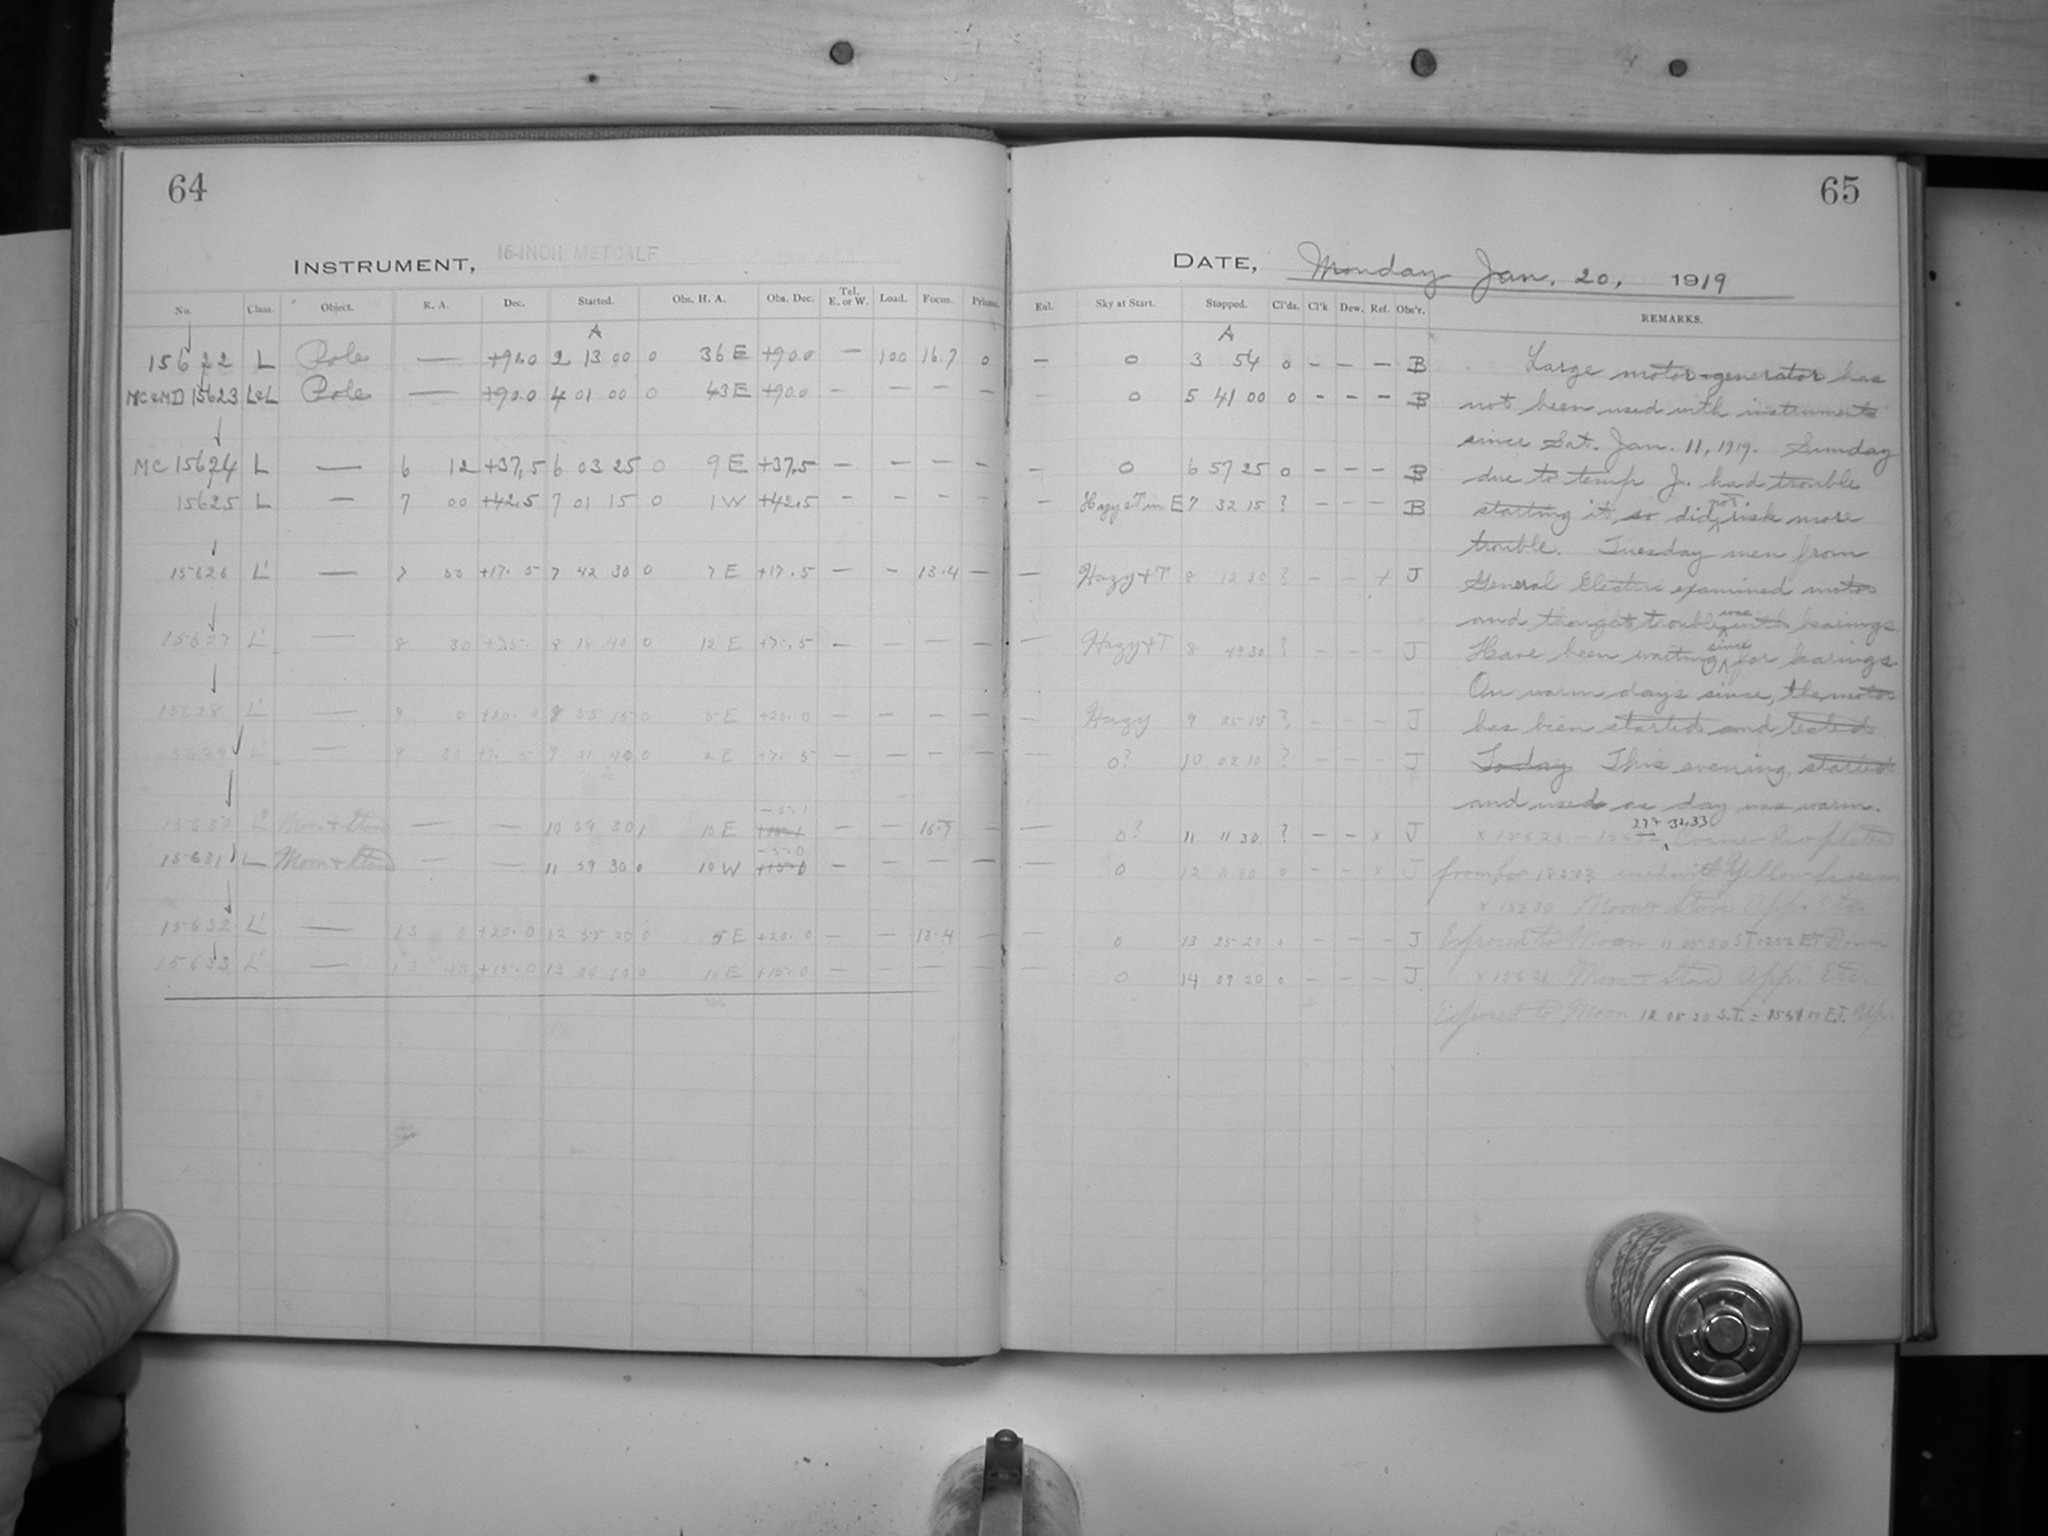 64
INSTRUMENT, 16-INCH METCALF
No. Class. Object. R. A. Dec. Started. Obs. H. A. Obs. Dec. Tel. E. or W. Load. Focus. Prisms.
A
15622 L Pole — +90.0 2 13 00 0 36 E +90.0 — 100 16.7 0
MC&MD 15623 L&L Pole — +90.0 4 01 00 0 43 E +90.0 — — — —
MC 15624 L — 6 12 +37.5 6 03 25 0 9 E +37.5 — — — —
15625 L — 7 00 +42.5 7 01 15 0 1 W +42.5 — — — —
15626 L' — 7 50 +17.5 7 42 30 0 7 E +17.5 — — 13.4 —
15627 L' — 8 30 8 18 40 0 12 E — — — —
15628 L' — 9 0 +20.0 8 55 15 0 5 E +20.0 — — — —
15629 L' — 9 30 9 31 40 0 2 E — — — —
-5.1
15630 L' Moon & Stars — — 10 59 30 1 10 E — — 16.7 —
-5.0
15631 L Moon & Stars — — 11 59 30 0 10 W +15.0 — — — —
15632 L' — 13 0 +20.0 12 55 20 0 5 E +20.0 — — 13.4 —
15633 L' — 13 40 +15.0 13 30 10 0 10 E +15.0 — — — —
65
DATE, Monday Jan. 20, 1919
Enl. Sky at Start. Stopped. Cl'ds. Cl'k Dew. Ref. Obs'r. REMARKS.
A
— 0 3 54 0 — — — B
— 0 5 41 00 0 — — — B
— 0 6 57 25 0 — — — B
— Hazy & T in E 7 32 15 ? — — — B
— Hazy & T 8 12 30 ? — — x J
— Hazy & T 8 49 30 ? — — — J
— Hazy 9 25 15 ? — — — J
— 0? 10 02 10 ? — — — J
— 0? 11 11 30 ? — — x J
— 0 12 11 30 0 — — x J
— 0 13 25 20 0 — — — J
— 0 14 09 20 0 — — — J
Large motor-generator has
not been used with instruments
since Sat. Jan. 11, 1919. Sunday
due to temp J. had trouble
starting it, so did not risk more
trouble. Tuesday men from
General Electric examined motor
and thought trouble was with bearings.
Have been waiting since for bearings.
On warm days since, the motor
has been started and tested
Today This evening, started
and used as day was warm.
x 15626 — 29 + 32, 33 Cramer Iso plates
from box used with Yellow Screen
x 15630 Moon & Stars App. Etc.
Exposed to Moon Down
x 15631 Moon & Stars App. Etc.
Exposed to Moon 12 05 30 S.T. = E.T. Up.